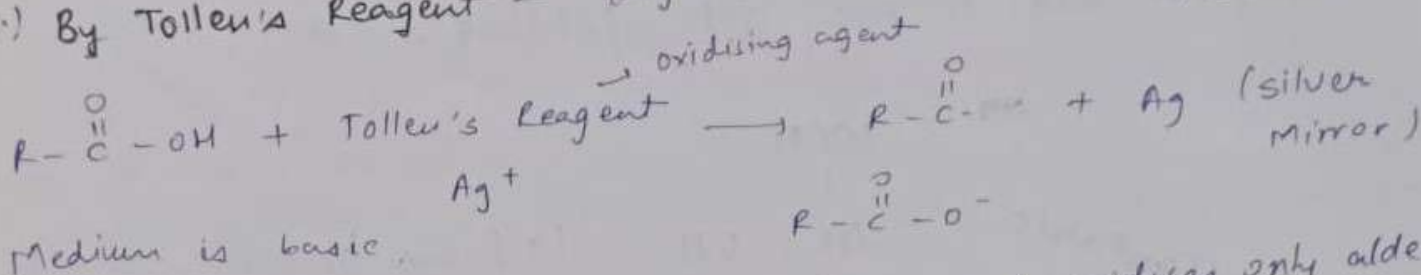 .) By Tollen's Reagent
→ oxidising agent
O O
|| ||
R - C - OH + Tollen's Reagent → R - C - + Ag (silver
Mirror)
Ag+
O
||
R - C - O-
Medium is basic.
only alde